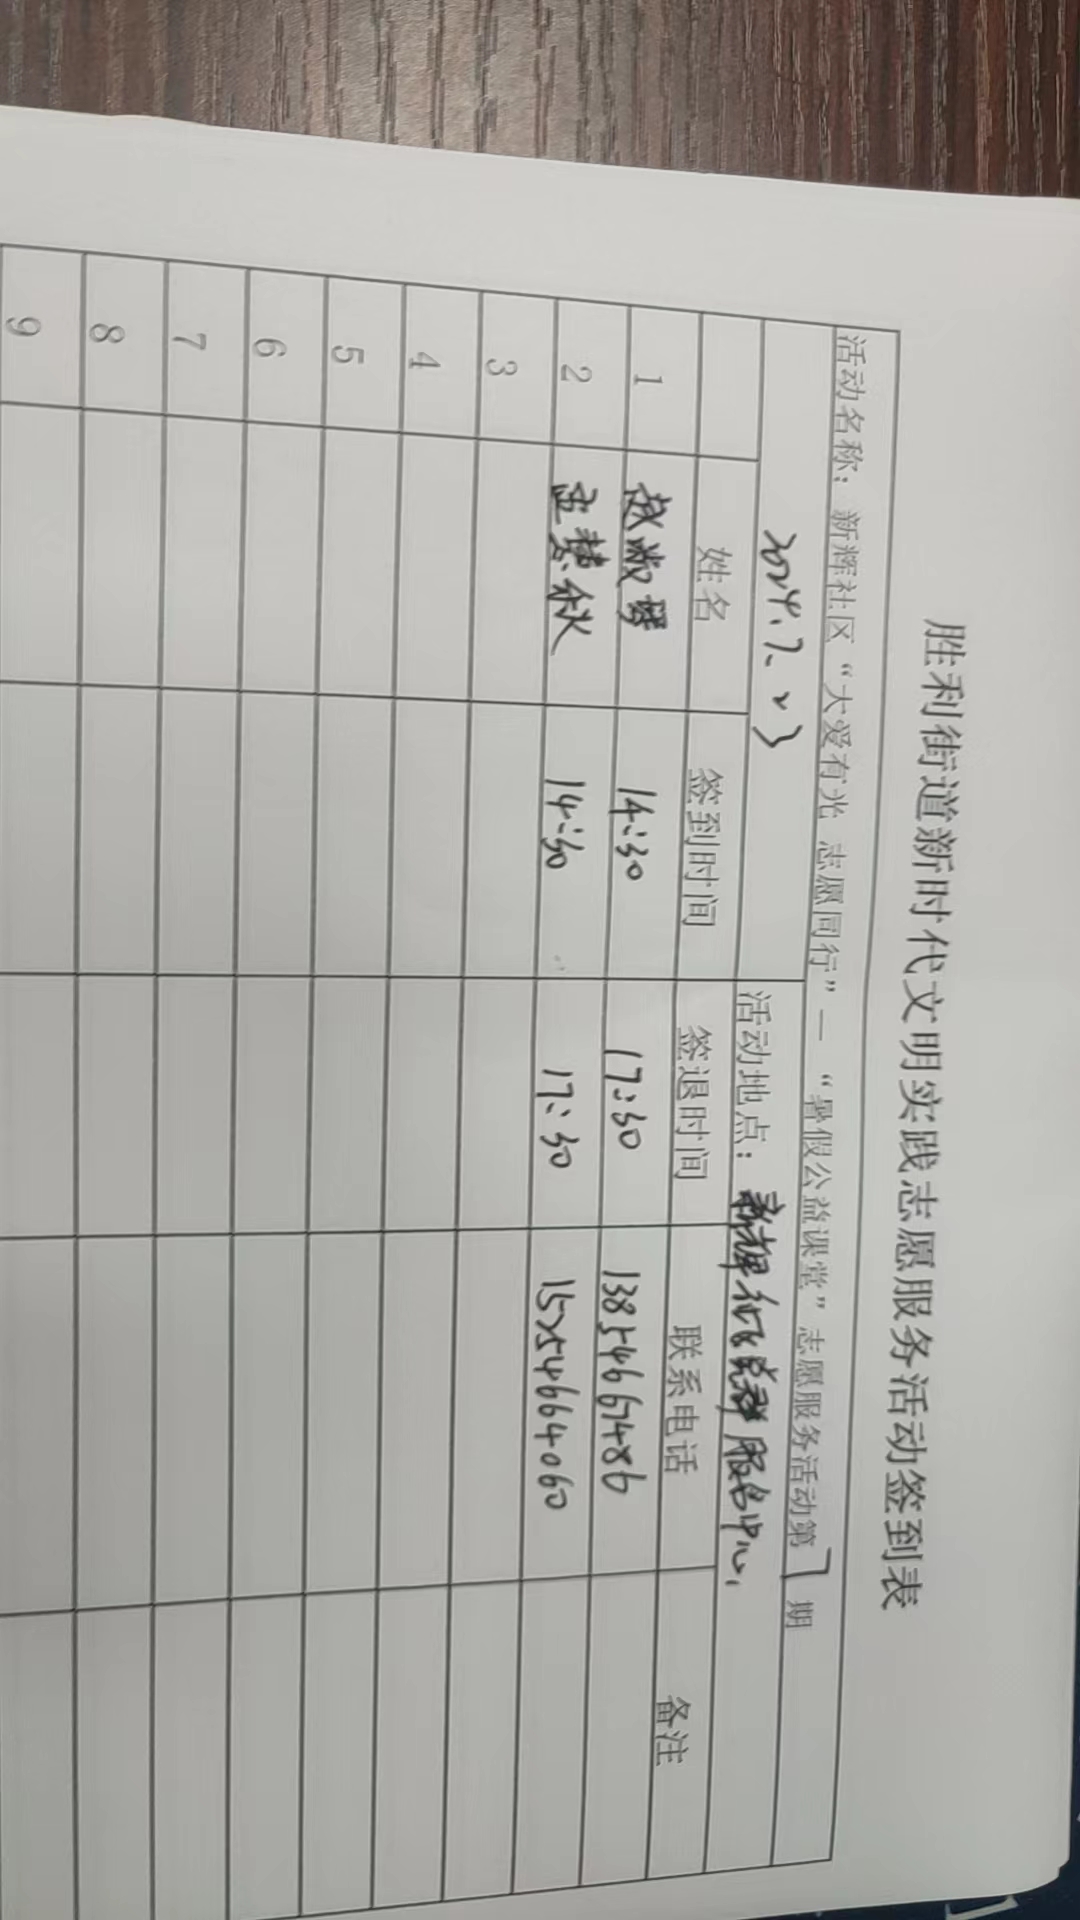 胜利街道新时代文明实践志愿服务活动签到表
活动名称：新辉社区“大爱有光 志愿同行”—“暑假公益课堂”志愿服务活动第7期
2024.7.23 活动地点：新辉社区党群服务中心
姓名 签到时间 签退时间 联系电话 备注
1 淑琴 14:30 17:30 13854667486
2 孟慧秋 14:30 17:30 15254664060
3
4
5
6
7
8
9